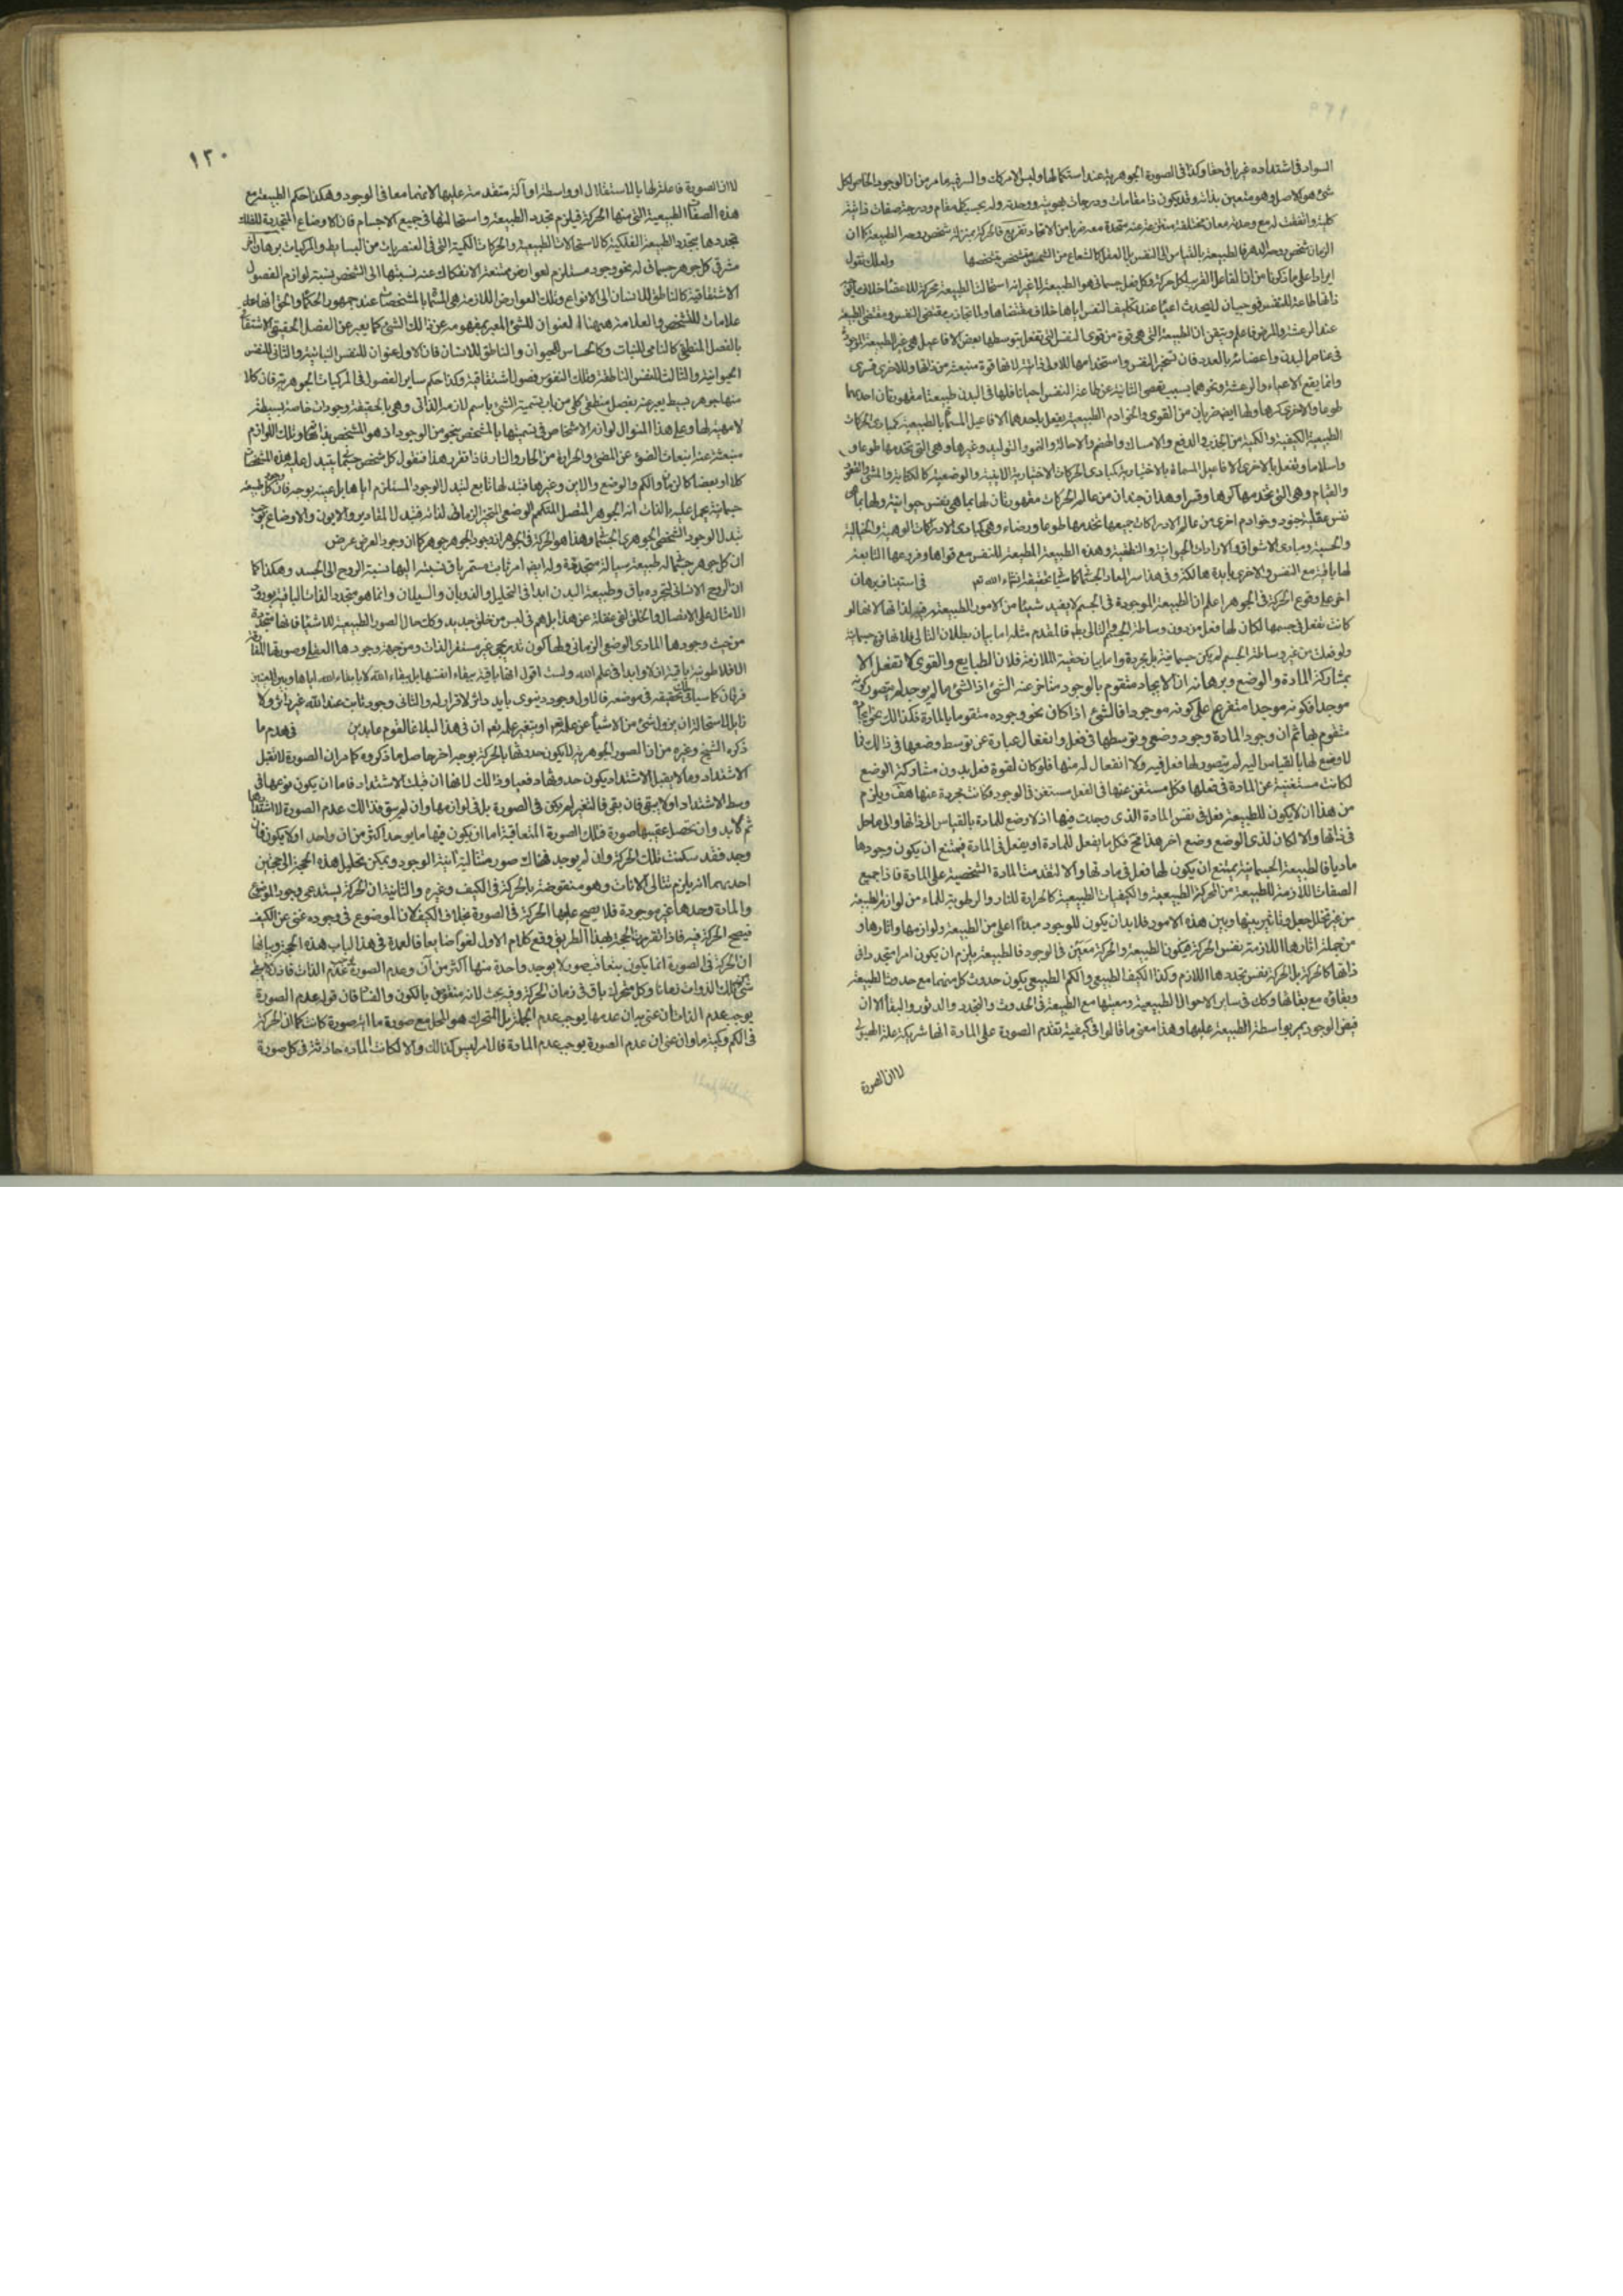 السواد في اشتداده غير باق حقا وكذا في الصورة الجوهرية عند استكمالها وليس الامر كذلك والسر فيه ما مر من ان الوجود الخاص لكل
شئ هو الاصل وهو متعين بذاته وقد يكون ذا مقامات ودرجات بهويته ووحدته وله بحسب كل مقام ودرجة صفات ذاتية
كلية واتفقت له مع وحدته معان مختلفة منتزعة عنه متحدة معه ضربا من الاتحاد تفريع فالحركة بمنزلة شخص روحه الطبيعة كما ان
الزمان شخص روحه الدهر والطبيعة بالقياس الى النفس بل العقل كالشعاع من الشمس يتشخص بتشخصها ولعلك تقول
ايرادا على ما ذكرنا من ان الفاعل القريب لكل حركة وكل فعل جسماني هو الطبيعة لا غير انه استحالت الطبيعة محركة للاعضاء خلاف ما يوجبه
ذاتها طاعة للنفس فوجب ان لا يحدث اعياء عند تكليف النفس اياها خلاف مقتضاها ولما تجاذب مقتضى النفس ومقتضى الطبيعة
عند الرعشة والمرض فاعلم وتيقن ان الطبيعة التي هي قوة من قوى النفس التي تفعل بتوسطها بعض الافاعيل هي غير الطبيعة الموجودة
في عناصر البدن واعضائه بالعدد فان تسخير النفس واستخدامها للاولى ذاتية لانها قوة منبعثة من ذاتها وللاخرى قسري
وانما يقع الاعياء والرعشة ونحوهما بسبب تعصي الثانية عن طاعة النفس احيانا فلها في البدن طبيعتان مقهورتان احدهما
طوعا والاخرى كرها ولها ايضا ضربان من القوى والخوادم الطبيعية يفعل باحدهما الافاعيل المسماة بالطبيعية كمبادي الحركات
الطبيعية الكيفية والكمية من الجذب والدفع والامساك والهضم والاحالة والنمو والتوليد وغيرها وهي التي تخدمها طوعا و
واسلاما وتفعل بالاخرى الافاعيل المسماة بالاختيارية كمبادي الحركات الاختيارية الاينية والوضعية كالكتابة والمشي والقعود
والقيام وهي التي تخدمها كرها وقسرا وهذان جندان من عالم الحركات مقهوران لها بما هي نفس حيوانية ولها بما هي
نفس عقلية جنود وخوادم اخرى من عالم الادراكات جميعها تخدمها طوعا ورضاء وهي كمبادي الادراكات الوهمية والخيالية
والحسية ومبادي الاشواق والارادات الحيوانية والنطقية وهذه الطبيعة المطيعة للنفس مع قواها وفروعها التابعة
لها باقية مع النفس والاخرى بايدة هالكة وفي هذا سر المعاد الجسماني كما سيأتي تحقيقه انشاء الله تع في استيناف برهان
اخر على وقوع الحركة في الجوهر اعلم ان الطبيعة الموجودة في الجسم لا يفيد شيئا من الامور الطبيعية فيه لذاتها لانها لو
كانت تفعل في جسمها لكان لها فعل من دون وساطة الجسم والتالي بط فالمقدم مثله اما بيان بطلان التالي فلانها قوة جسمانية
ولو فعلت من غير وساطة الجسم لم يكن جسمانية بل مجردة واما بيان حقية الملازمة فلان الطبايع والقوى لا تفعل الا
بمشاركة المادة والوضع وبرهانه ان الايجاد متقوم بالوجود متأخر عنه الشئ اذ الشئ ما لم يوجد لم يتصور كونه
موجدا فكونه موجدا متفرع على كونه موجودا فالشئ اذا كان نحو وجوده متقوما بالمادة فكذلك نحو ايجاده
متقوم بها ثم ان وجود المادة وجود وضعي وتوسطها في فعل وانفعال عبارة عن توسط وضعها في ذلك فما
لا وضع لها بالقياس اليه لم يتصور لها فعل فيه ولا انفعال له منها فلو كان لقوة فعل بدون مشاركة الوضع
لكانت مستغنية عن المادة في فعلها وكل مستغن عنها في الفعل مستغن في الوجود فكانت مجردة عنها هف ويلزم
من هذا ان لا يكون للطبيعة فعل في نفس المادة الذي وجدت فيها اذ لا وضع للمادة بالقياس الى ذاتها والى ما حل
في ذاتها والا لكان لذي الوضع وضع اخر هذا مح فكل ما يفعل للمادة او يفعل في المادة فيمتنع ان يكون وجودها
ماديا فالطبيعة الجسمانية يمتنع ان يكون لها فعل في مادتها والا لتقدمت المادة الشخصية على المادة فاذا جميع
الصفات اللازمة للطبيعة من الحركة الطبيعية والكيفيات الطبيعية كالحرارة للنار والرطوبة للماء من لوازم الطبيعة
من غير تخلل جعل وتاثير بينها وبين هذه الامور فلا بد ان يكون للوجود مبدأ اعلى من الطبيعة ولوازمها واثارها و
من جملة اثارها اللازمة نفس الحركة فيكون الطبيعة والحركة معين في الوجود فالطبيعة يلزم ان يكون امرا متجددا في
ذاتها كالحركة بل الحركة نفس تجددها اللازم وكذا الكيف الطبيعي والكم الطبيعي يكون حدوث كل منهما مع حدوث الطبيعة
وبقاؤه مع بقائها وكك في ساير الاحوال الطبيعية ومعيتها مع الطبيعة في الحدوث والتجدد والدثور والبقاء الا ان
فيض الوجود يمر بواسطة الطبيعة عليها وهذا معنى ما قالوا في كيفية تقدم الصورة على المادة انها شريكة علة الهيولى
لا ان الصورة
١٢٠
لا ان الصورة فاعلة لها بالاستقلال او واسطة او آلة متقدمة عليها لانهما معا في الوجود وهكذا حكم الطبيعة مع
هذه الصفات الطبيعية التي منها الحركة فيلزم تجدد الطبيعة واستحالتها في جميع الاجسام فان الاوضاع المتجددة للفلك
تجددها بتجدد الطبيعة الفلكية كالاستحالات الطبيعية والحركات الكمية التي في العنصريات من البسايط والمركبات برهان اخر
مشرقي كل جوهر جسماني له نحو وجود مستلزم لعوارض ممتنعة الانفكاك عنه نسبتها الى الشخص نسبة لوازم الفصول
الاشتقاقية كالناطق للانسان الى الانواع وتلك العوارض اللازمة هي المسماة بالمشخصات عند جمهور الحكماء والحق انها
علامات للتشخص والعلامة هيهنا العنوان للشئ المعبر بمفهومه عن ذلك الشئ كما يعبر عن الفصل الحقيقي الاشتقاقي
بالفصل المنطقي كالنامي للنبات وكالحساس للحيوان والناطق للانسان فان الاول عنوان للنفس النباتية والثاني للنفس
الحيوانية والثالث للنفس الناطقة وتلك النفوس فصول اشتقاقية وكذا حكم ساير الفصول في المركبات الجوهرية فان كلا
منها جوهر بسيط يعبر عنه بفصل منطقي كلي من باب تسمية الشئ باسم لازمه الذاتي وهي بالحقيقة وجودات خاصة بسيطة
لا مهية لها وعلى هذا المنوال لوازم الاشخاص في تسميتها بالمشخص بنحو من الوجود اذ هو المتشخص بذاته وتلك اللوازم
منبعثة عنه انبعاث الضوء عن المضئ والحرارة من الحار والنار فاذا تقرر هذا فنقول كل شخص جسماني يتبدل عليه هذه المشخصات
كلا او بعضا كالزمان والكم والوضع والاين وغيرها فتبدلها تابع لتبدل الوجود المستلزم اياها بل عينه بوجه فان وجود كل طبيعة
جسمانية يحمل عليه بالذات انه الجوهر المتصل المتكمم الوضعي المتحيز الزماني لذاته فتبدل المقادير والالوان والاوضاع يوجب
تبدل الوجود الشخصي الجوهري الجسماني وهذا هو الحركة في الجوهر اذ وجود الجوهر جوهر كما ان وجود العرض عرض
ان كل جوهر جسماني له طبيعة سيالة متجددة وله ايضا امر ثابت مستمر باق نسبته اليها نسبة الروح الى الجسد وهكذا كما
ان الروح الانساني لتجرده باق وطبيعة البدن ابدا في التحليل والذوبان والسيلان وانما هو متجدد الذات الباقية بورود
الامثال على الاتصال والخلق لفي غفلة عن هذا بل هم في لبس من خلق جديد وكك حال الصور الطبيعية للاشياء فانها متجددة
من حيث وجودها المادي الوضعي الزماني ولها كون تدريجي غير مستقر الذات ومن حيث وجودها العقلي وصورتها المفارقة
الافلاطونية باقية ازلا وابدا في علم الله ولست اقول انها باقية ببقاء انفسها بل ببقاء الله لا بابقاء الله اياها وبين المعنيين
فرقان كما سياتي تحقيقه في موضعه فالاول وجود دنيوي بايد داثر لا قرار له والثاني وجود ثابت عند الله غير داثر ولا
زايل لاستحالة ان يزول شئ من الاشياء عن علمه تع او يتغير علمه تع ان في هذا لبلاغا لقوم عابدين في هدم ما
ذكره الشيخ وغيره من ان الصور الجوهرية لا يكون حدوثها بالحركة بوجه اخر حاصل ما ذكروه كما مر ان الصورة لا تقبل
الاشتداد وما لا يقبل الاشتداد يكون حدوثها دفعيا وذلك لانها ان قبلت الاشتداد فاما ان يكون نوعها في
وسط الاشتداد او لا يبقى فان بقى فالتغير لم يكن في الصورة بل في لوازمها وان لم يبق فذلك عدم الصورة لا اشتدادها
ثم لا بد وان تحصل عقيبها صورة فتلك الصورة المتعاقبة اما ان يكون فيها ما يوجد اكثر من ان واحد او لا يكون فان
وجد فقد سكنت تلك الحركة وان لم يوجد فهناك صور متتالية آنية الوجود ويمكن تحليل هذه الحجة الى حجتين
احديهما انه يلزم تتالي الانات وهو منقوضة بالحركة في الكيف وغيره والثانية ان الحركة يستدعي وجود الموضوع
والمادة وحدها غير موجودة فلا يصح عليها الحركة في الصورة بخلاف الكيف لان الموضوع في وجوده غني عن الكيف
فيصح الحركة فيه فاذا تقررت الحجة بهذا الطريق وقع كلام الاول لغوا ضايعا فالعمدة في هذا الباب هذه الحجة وبيانها
ان الحركة في الصورة انما يكون بتعاقب صور لا يوجد واحدة منها اكثر من آن وعدم الصورة يوجب عدم الذات فاذن لا يبقى
شئ من تلك الذوات زمانا وكل متحرك باق في زمان الحركة وفيه بحث لانه منقوض بالكون والفساد فان قوله عدم الصورة
يوجب عدم الذات ان عنى به ان عدمها يوجب عدم الجملة بل المتحرك هو المحل مع صورة ما اية صورة كانت كما ان الحركة
في الكم وكيفية ما وان عنى ان عدم الصورة يوجب عدم المادة فالامر ليس كذلك والا لكانت المادة حادثة في كل صورة